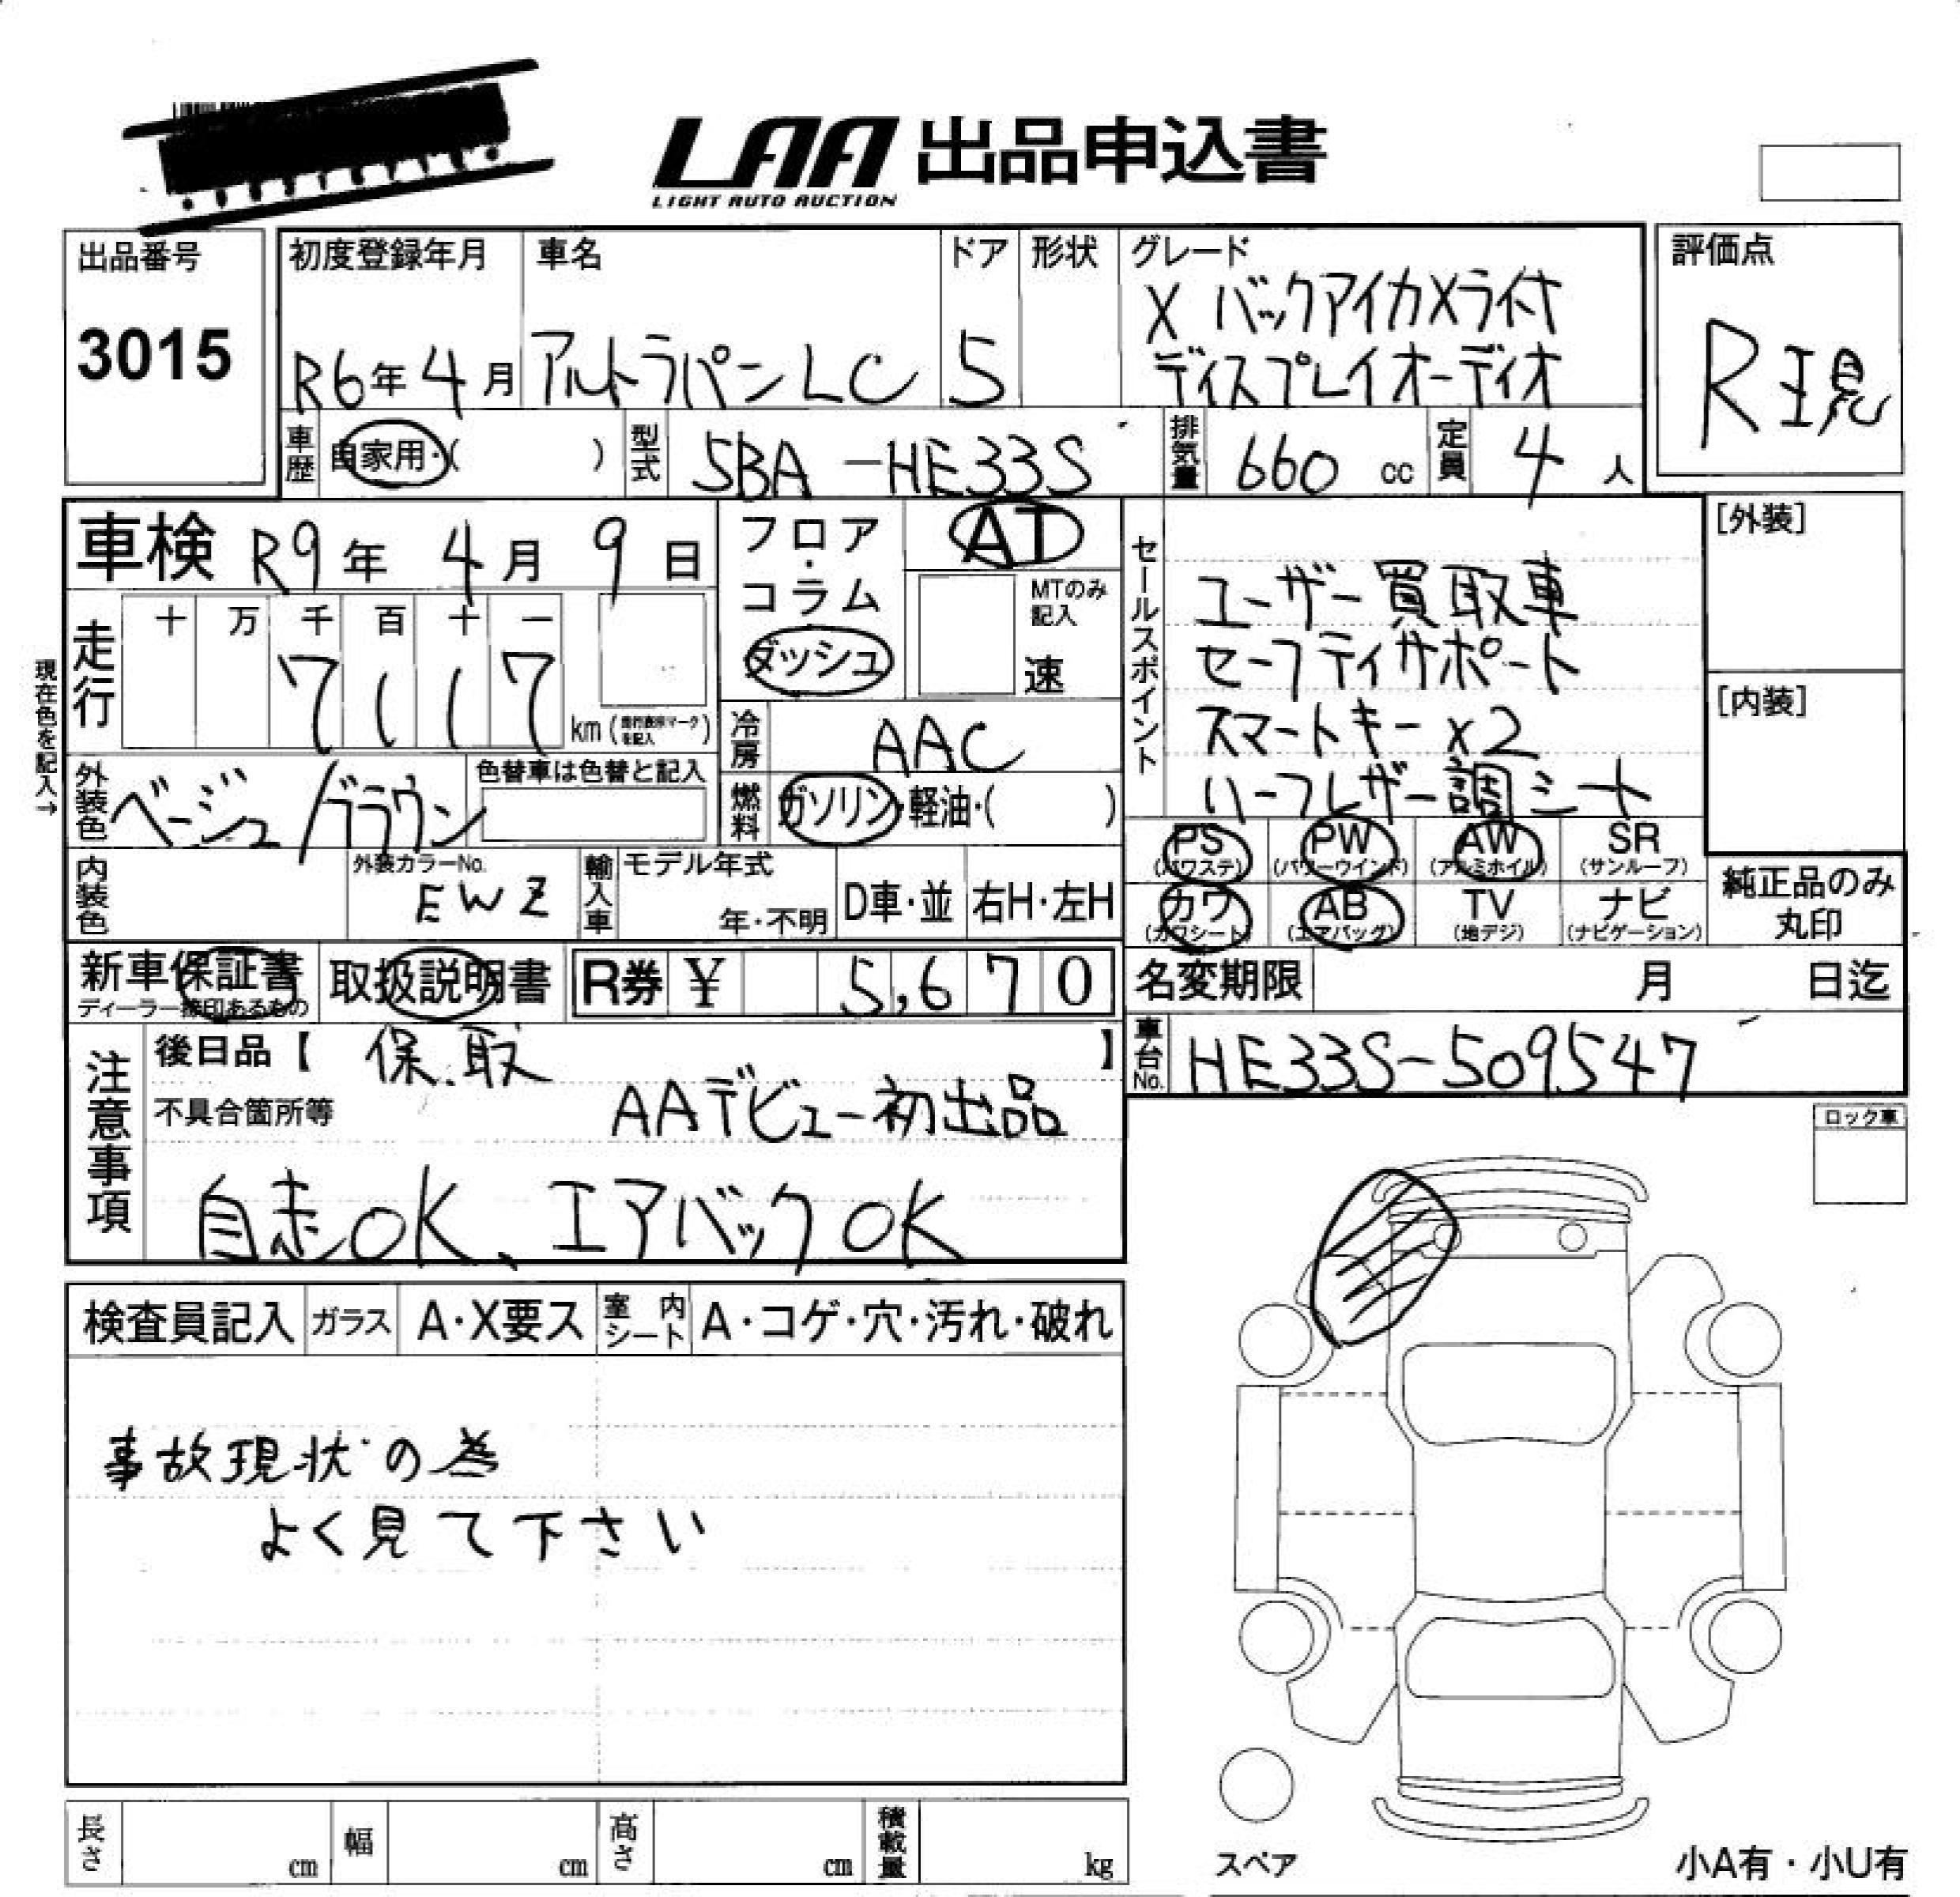 LAA 出品申込書
LIGHT AUTO AUCTION
出品番号
3015
初度登録年月
R6年4月
車名
アルトラパンLC
ドア
5
形状
グレード
X バックアイカメラ付
ディスプレイオーディオ
評価点
R現
車歴
自家用・( )
型式
5BA-HE33S
排気量
660 cc
定員
4人
車検 R9年 4月 9日
現在色を記入→
走行
十 万 千 百 十 一
7 1 1 7
km(走行表示マークを記入)
フロア・コラム
ダッシュ
AT
MTのみ
記入
速
冷房
AAC
燃料
ガソリン・軽油・( )
外装色
ベージュ/ブラウン
色替車は色替と記入
内装色
外装カラーNo.
EWZ
輸入車
モデル年式
年・不明
D車・並
右H・左H
セールスポイント
ユーザー買取車
セーフティサポート
スマートキー×2
ハーフレザー調シート
[外装]
[内装]
PS
(パワステ)
PW
(パワーウインド)
AW
(アルミホイル)
SR
(サンルーフ)
カワ
(カワシート)
AB
(エアバッグ)
TV
(地デジ)
ナビ
(ナビゲーション)
純正品のみ
丸印
新車保証書
ディーラー捺印あるもの
取扱説明書
R券 ¥ 5,670
名変期限 月 日迄
車台No.
HE33S-509547
注意事項
後日品【 保.取 】
不具合箇所等
AAデビュー初出品
自走OK、エアバックOK
ロック車
検査員記入
ガラス
A・X要ス
室内シート
A・コゲ・穴・汚れ・破れ
事故現状の為
よく見て下さい
長さ cm
幅 cm
高さ cm
積載量 kg
スペア
小A有・小U有